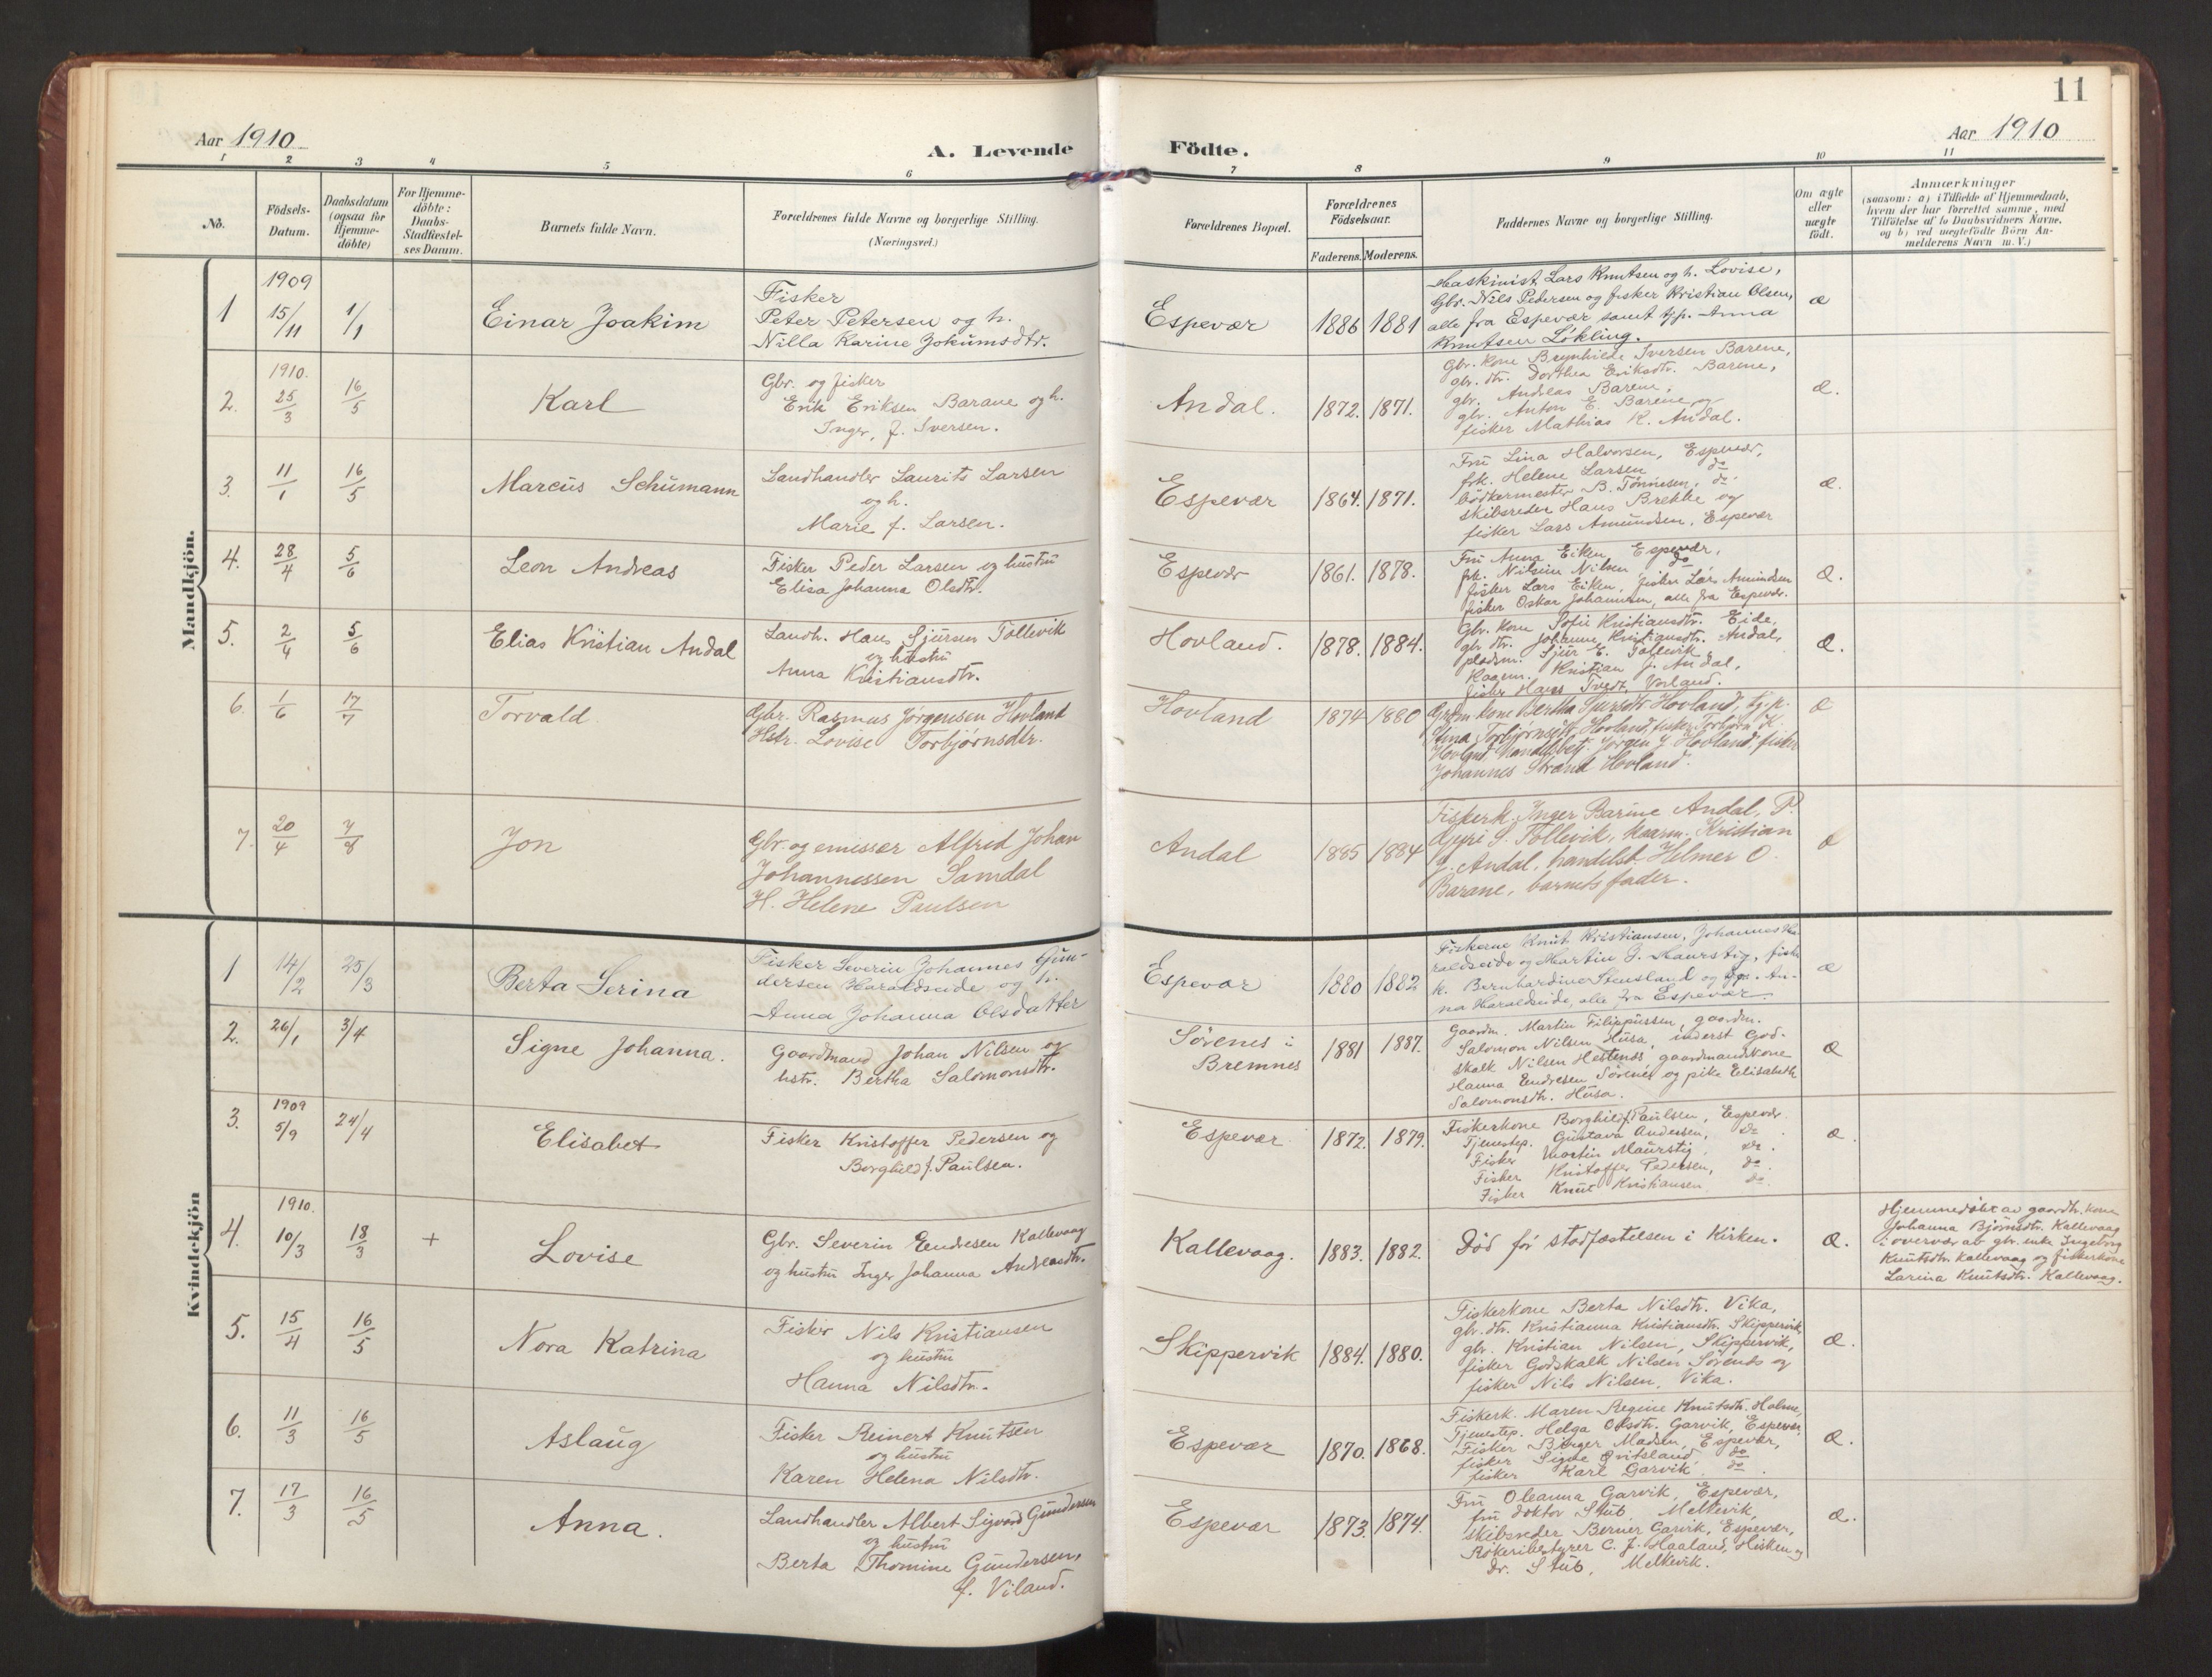 11
Aar 1910
A. Levende Födte.
Aar 1910
1 2 3 4 5 6 7 8 9 10 11
No.
Födsels-
Datum.
Daabsdatum
(ogsaa for
Hjemme-
döbte)
For Hjemme-
döbte:
Daabs-
Stadfæstel-
ses Datum.
Barnets fulde Navn.
Forældrenes fulde Navne og borgerlige Stilling.
(Næringsvei.)
Forældrenes Bopæl.
Forældrenes
Födselsaar.
Faderens. Moderens.
Faddernes Navne og borgerlige Stilling.
Om ægte
eller
uægte
födt.
Anmærkninger
(saasom: a) i Tilfælde af Hjemmedaab,
hvem der har forrettet samme, med
Tilföielse af to Daabsvidners Navne,
og b) ved uægtefödte Börn An-
melderens Navn m. V.)
Mandkjön.
1
1909
15/11
1/1
Einar Joakim
Fisker
Peter Petersen og h.
Nilla Karine Jokumsdtr.
Espevær
1886 1881
Maskinist Lars Knutsen og h. Lovise,
Gbr. Nils Pedersen og fisker Kristian Olsen,
alle fra Espevær samt tjp. Anna
Knutsen Løkling.
æ
2.
1910.
25/3
16/5
Karl
Gbr. og fisker
Erik Eriksen Barane og h.
Inger, f. Iversen.
Andal.
1872. 1871.
Gbr. kone Brynhilde Iversen Barene,
gbr. dtr. Dorthea Eriksdtr. Barene,
gbr. Andreas Barene,
gbr. Anton E. Barene og
fisker Mathias K. Andal.
æ.
3.
11/1
16/5
Marcus Schumann
Landhandler Laurits Larsen
og h.
Marie f. Larsen.
Espevær
1864. 1871.
Fru Lina Halvorsen, Espevær,
frk. Helene Larsen do
bødkermester B. Tönnesen, do.
skibsreder Hans Brekke og
fisker Lars Amundsen, Espevær
æ.
4.
28/4
5/6
Leon Andreas
Fisker Peder Larsen og hustru
Elisa Johanna Olsdtr.
Espevær
1861. 1878.
Fru Anna Eiken, Espevær,
frk. Nilsine Nilsen do
fisker Lars Eiken, fisker Lars Amundsen
fisker Oskar Johannesen, alle fra Espevær.
æ.
5.
2/4
5/6
Elias Kristian Andal
Landh. Hans Sjursen Tollevik
og hustru
Anna Kristiansdtr.
Hovland.
1878. 1884.
Gbr. kone Sofie Kristiansdtr. Eide,
gbr. dtr. Johanne Kristiansdtr. Andal,
pladsm. Sjur E. Tollevik,
Kaarm. Kristian J. Andal,
fisker Hans Tvedt, Vorland.
æ.
6.
1/6
17/7
Torvald
Gbr. Rasmus Jørgensen Hovland
Hstr. Lovise Torbjørnsdtr.
Hovland
1874 1880
Grdm. kone Bertha Sjursdtr Hovland, tj.p.
Stina Torbjørnsdtr. Hovland, fisker Torbjørn K.
Hovland, handelsbetj. Jørgen J. Hovland, fisker
Johannes Strand Hovland.
æ
7.
20/4
7/8
Jon
Gbr. og emissær Alfred Johan
Johannessen Samdal
H. Helene Paulsen
Andal
1885 1884
Fiskerk. Inger Barine Andal, P.
Gyri S. Tollevik, kaarm. Kristian
J. Andal, handelsb. Helmer O.
Barane, barnets fader.
æ
Kvindekjön
1
14/2
25/3
Berta Serina
Fisker Severin Johannes Gun-
dersen Haraldseide og h.
Anna Johanna Olsdatter
Espevær
1880 1882
Fiskerne Knut Kristiansen, Johannes Ha-
raldseide og Martin G. Maurstig, fisker
k. Bernhardine Stensland og tjp. An-
na Haraldseide, alle fra Espevær.
æ
2.
26/1
3/4
Signe Johanna.
Gaardmand Johan Nilsen og
hstr. Bertha Salomonsdtr.
Sørenes i
Bremnes
1881 1887.
Gaardm. Martin Filippussen, gaardm.
Salomon Nilsen Husa, inderst God-
skalk Nilsen Hestenes, gaardmandskone
Hanna Endresen Sörenes og pike Elisabeth
Salomonsdtr. Husa.
æ
3.
1909
5/9
24/4
Elisabet
Fisker Kristoffer Pedersen og
Borghild f. Paulsen.
Espevær
1872. 1879.
Fiskerkone Borghild f. Paulsen, Espevær
Tjenestep. Gustava Andersen, do.
Fisker Martin Maurstig, do.
Fisker Kristoffer Pedersen, do.
Fisker Knut Kristiansen do.
æ.
4.
1910.
10/3
18/3
+
Lovise
Gbr. Severin Endresen Kallevaag
og hustru Inger Johanna Andreasdtr.
Kallevaag.
1883. 1882.
Död för stadfæstelsen i Kirken.
æ.
Hjemmedöbt av gaardbr. kone
Johanna Björnsdtr. Kallevaag
i overvær av gbr. enke Ingeborg
Knutsdtr. Kallevaag og fiskerkone
Larina Knutsdtr. Kallevaag.
5.
15/4
16/5
Nora Katrina
Fisker Nils Kristiansen
og hustru
Hanna Nilsdtr.
Skippervik
1884. 1880.
Fiskerkone Berta Nilsdtr. Vika,
gbr. dtr. Kristianna Kristiansdtr. Skippervik,
gbr. Kristian Nilsen, Skippervik,
fisker Godskalk Nilsen Sörenes og
fisker Nils Nilsen, Vika.
æ.
6.
11/3
16/5
Aslaug
Fisker Reinert Knutsen
og hustru
Karen Helena Nilsdtr.
Espevær
1870. 1868.
Fiskerk. Maren Regine Knutsdtr. Holme,
Tjenestep. Helga Olsdtr. Garvik, Espevær,
Fisker Birger Madsen, Espevær,
fisker Signe do
fisker Karl Garvik do.
æ.
7.
17/3
16/5
Anna.
Landhandler Albert Sigvard Gundersen
og hustru
Berta Thomine Gundersen,
f. Viland.
Espevær
1873. 1874.
Fru Oleanna Garvik, Espevær,
fru doktor Stub, Melkevik,
skibsreder Berner Garvik, Espevær,
Rökeribestyrer C. J. Haaland, Hisken og
Dr. Stub, Melkevik.
æ.